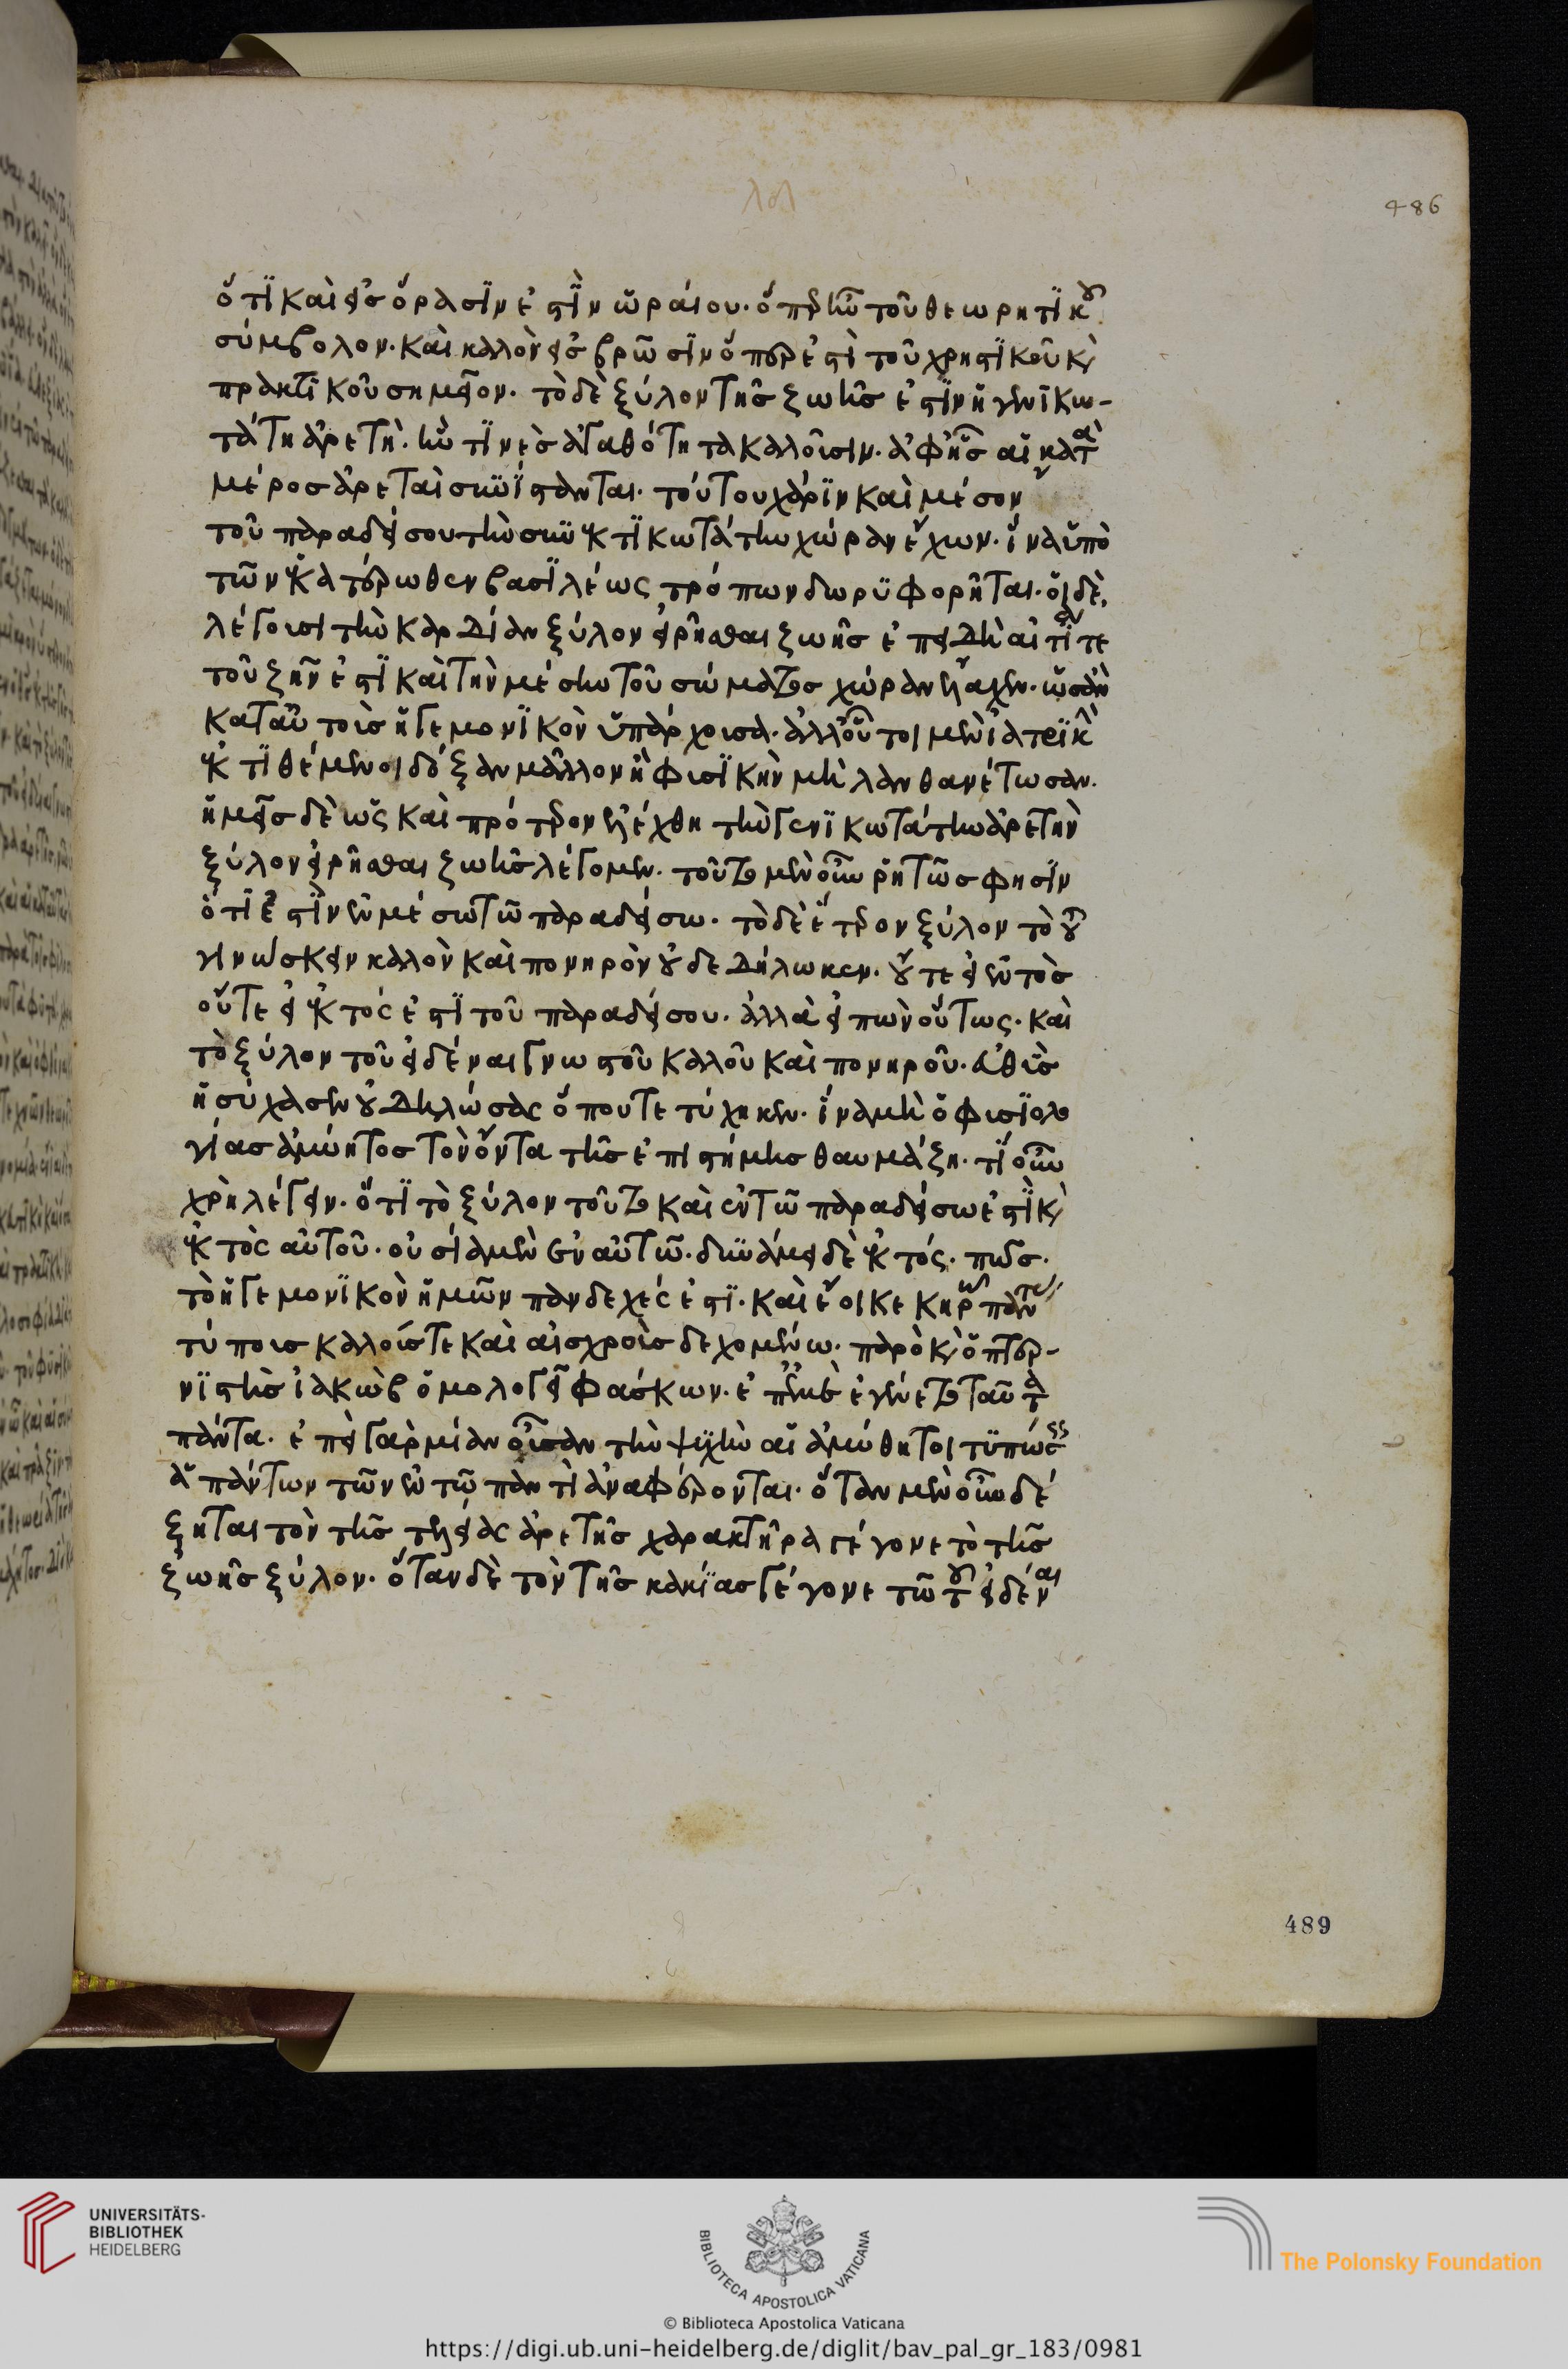 486
ὅτι καὶ εἰς ὅρασίν ἐστιν ὡραῖον· ὅπερ ἦν τοῦ θεωρητικοῦ
σύμβολον· καὶ καλὸν εἰς βρῶσιν ὅπερ ἐστὶ τοῦ χρηστικοῦ καὶ
πρακτικοῦ σημεῖον· τὸ δὲ ξύλον τῆς ζωῆς ἐστιν ἡ γενικω-
τάτη ἀρετὴ· ἣν τινὲς ἀγαθότητα καλοῦσιν· ἀφ' ἧς αἱ κατὰ
μέρος ἀρεταὶ συνίστανται· τούτου χάριν καὶ μέσον
τοῦ παραδείσου τὴν συνεκτικωτάτην χώραν ἔχων· ἵνα ὑπὸ
τῶν ἑκατέρωθεν βασιλέως τρόπων δωρυφορῆται· οἱ δὲ
λέγουσι τὴν καρδίαν ξύλον εἰρῆσθαι ζωῆς ἐπειδὴ αἰτία τε
τοῦ ζῆν ἐστι καὶ τὴν μέσην τοῦ σώματος χώραν ἔλαχεν· ὡσὰν
κατ' αὐτοὺς ἡγεμονικὸν ὑπάρχουσα· ἀλλ' οὗτοι μὲν ἰατρικὴν
ἐκτιθέμενοι δόξαν μᾶλλον ἢ φυσικὴν μὴ λανθανέτωσαν·
ἡμεῖς δὲ ὡς καὶ πρότερον ἐλέχθη τὴν γενικωτάτην ἀρετὴν
ξύλον εἰρῆσθαι ζωῆς λέγομεν· τοῦτο μὲν οὖν ῥητῶς φησὶν
ὅτι ἐστὶν ἐν μέσω τῶ παραδείσω· τὸ δὲ ἕτερον ξύλον τὸ τοῦ
γινώσκειν καλὸν καὶ πονηρὸν οὐ δεδήλωκεν· οὔτε εἰ ἐντὸς
οὔτε εἰ ἐκτός ἐστι τοῦ παραδείσου· ἀλλὰ εἰπὼν οὕτως· καὶ
τὸ ξύλον τοῦ εἰδέναι γνωστοῦ καλοῦ καὶ πονηροῦ· εὐθὺς
ἡσύχασεν οὐ δηλώσας ὅπου τετύχηκεν· ἵνα μὴ ὁ φυσιολο
γίας ἀμύητος τὸν ὄντα τῆς ἐπιστήμης θαυμάζη· τί οὖν
χρὴ λέγειν· ὅτι τὸ ξύλον τοῦτο καὶ ἐν τῶ παραδείσω ἐστὶ καὶ
ἐκτὸς αὐτοῦ· οὐσία μὲν ἐν αὐτῶ· δυνάμει δὲ ἐκτός· πῶς·
τὸ ἡγεμονικὸν ἡμῶν πανδεχές ἐστι· καὶ ἔοικε κηρῶ πάντας
τύπους καλούς τε καὶ αἰσχροὺς δεχομένω· παρὸ καὶ ὁ πτερ-
νιστὴς ἰακὼβ ὁμολογεῖ φάσκων· ἐπ' ἐμὲ ἐγένετο ταῦτα
πάντα· ἐπεὶ γὰρ μίαν οὖσαν τὴν ψυχὴν αἱ ἀμύθητοι τυπώσεις
ἁπάντων τῶν ἐν τῶ παντὶ ἀναφέρονται· ὅταν μὲν οὖν δέ
ξηται τὸν τῆς τελείας ἀρετῆς χαρακτῆρα γέγονε τὸ τῆς
ζωῆς ξύλον· ὅταν δὲ τὸν τῆς κακίας γέγονε τῶ τοῦ εἰδέναι
489
UNIVERSITÄTS-
BIBLIOTHEK
HEIDELBERG
BIBLIOTECA APOSTOLICA VATICANA
The Polonsky Foundation
© Biblioteca Apostolica Vaticana
https://digi.ub.uni-heidelberg.de/diglit/bav_pal_gr_183/0981